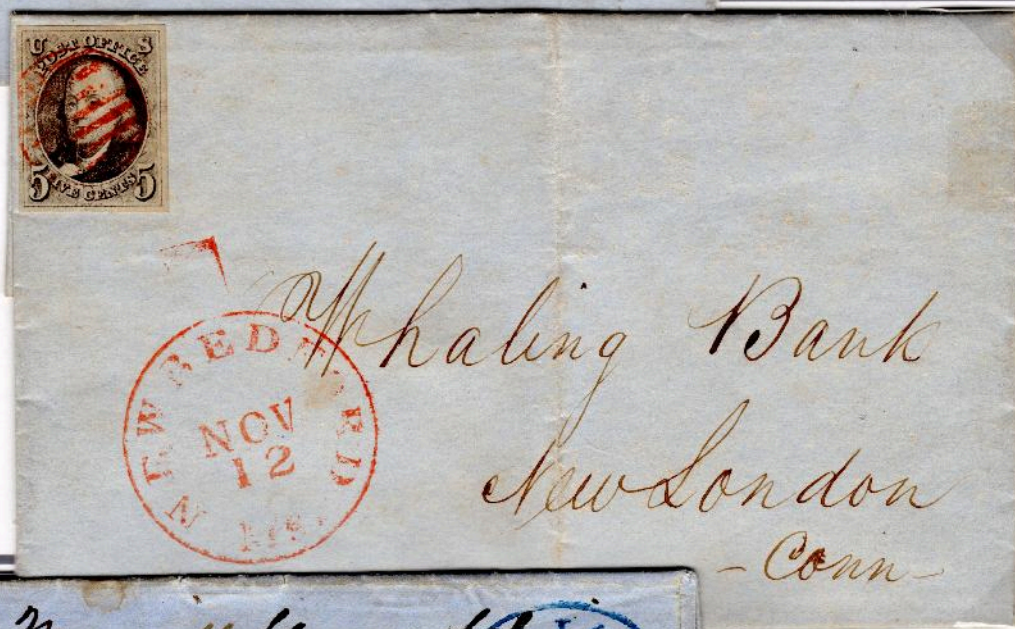 U S
POST OFFICE
5 FIVE CENTS 5
NEW BEDFORD
NOV
12
Ms.
Whaling Bank
New London
- Conn -